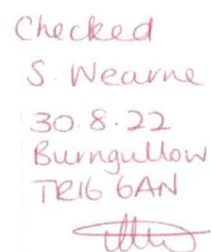 Checked
S. Wearne
30.8.22
Burngullow
TR16 6AN